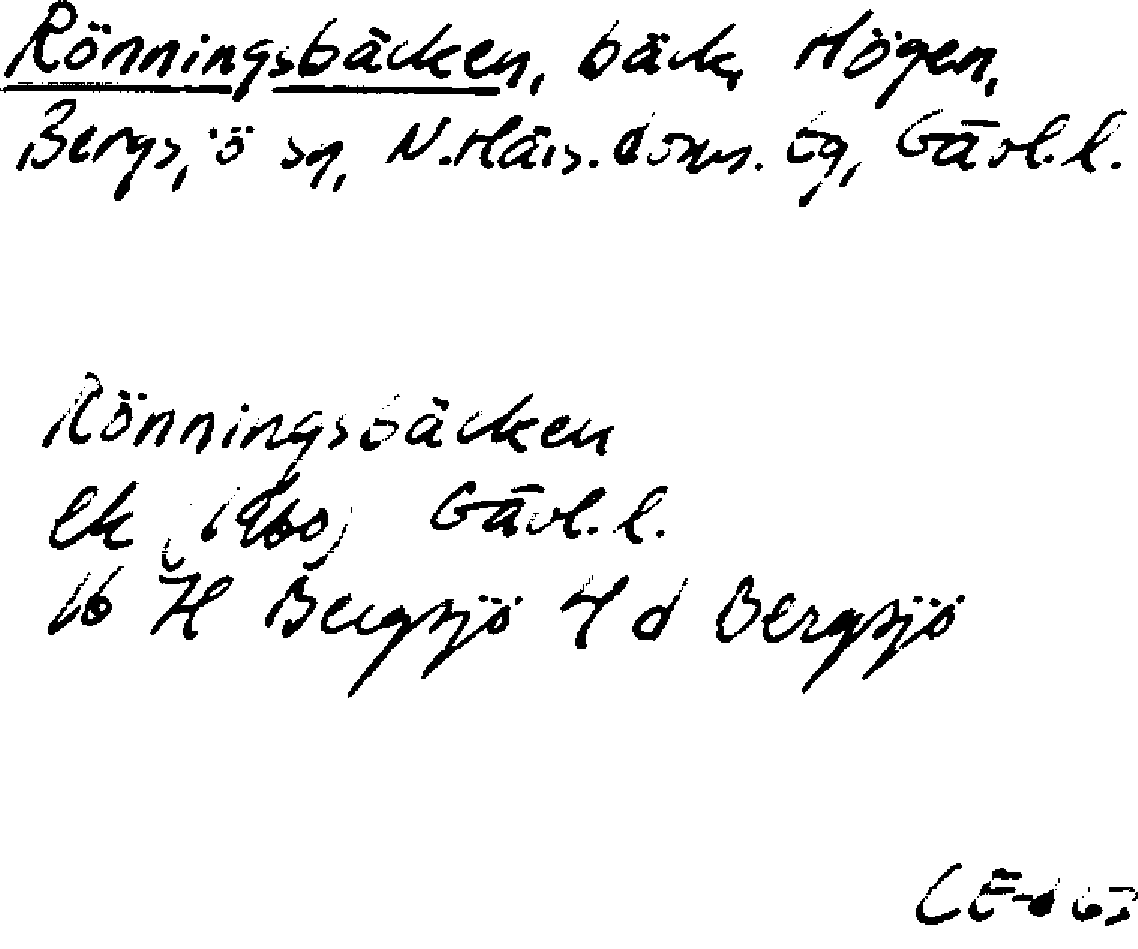 Rönningsbäcken, bäck, Högen,
Bergsjö sn, N. Häls. doms. tg, Gävl. l.
Rönningsbäcken
ek (1960) Gävl. l.
16 H Bergsjö 4 d Bergsjö